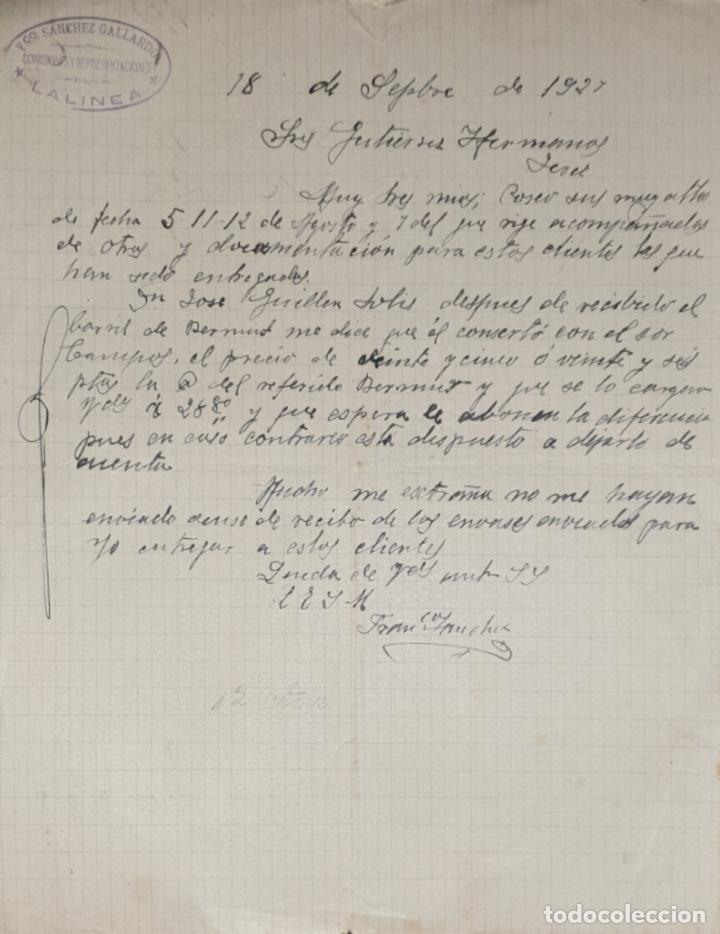 FCO. SANCHEZ GALLARDO
COMISIONES Y REPRESENTACIONES
LA LINEA
18 de Sepbre de 1927
Sres Gutierrez Hermanos
Jerez
Muy Sres mios; Poseo sus muy attas
de fecha 5 11-12 de Agosto y 7 del que rige acompañadas
de otras y documentación para estos clientes las que
han sido entregadas.
Dn Jose Guillen Solis despues de recibido el
barril de Bermut me dice que él consertó con el sor
Campos, el precio de veinte y cinco ó veinte y seis
ptas la @ del referido Bermut y que se lo cargan
Vds á 28 y que espera le abonen la diferencia
pues en caso contrareo esta dispuesto a dejarlo de
cuenta
Mucho me extraña no me hayan
enviado acuse de recibo de los envases enviados para
yo entregar a estos clientes
Queda de Vds SS
Q E S M
Franco Sanchez
12
todocoleccion